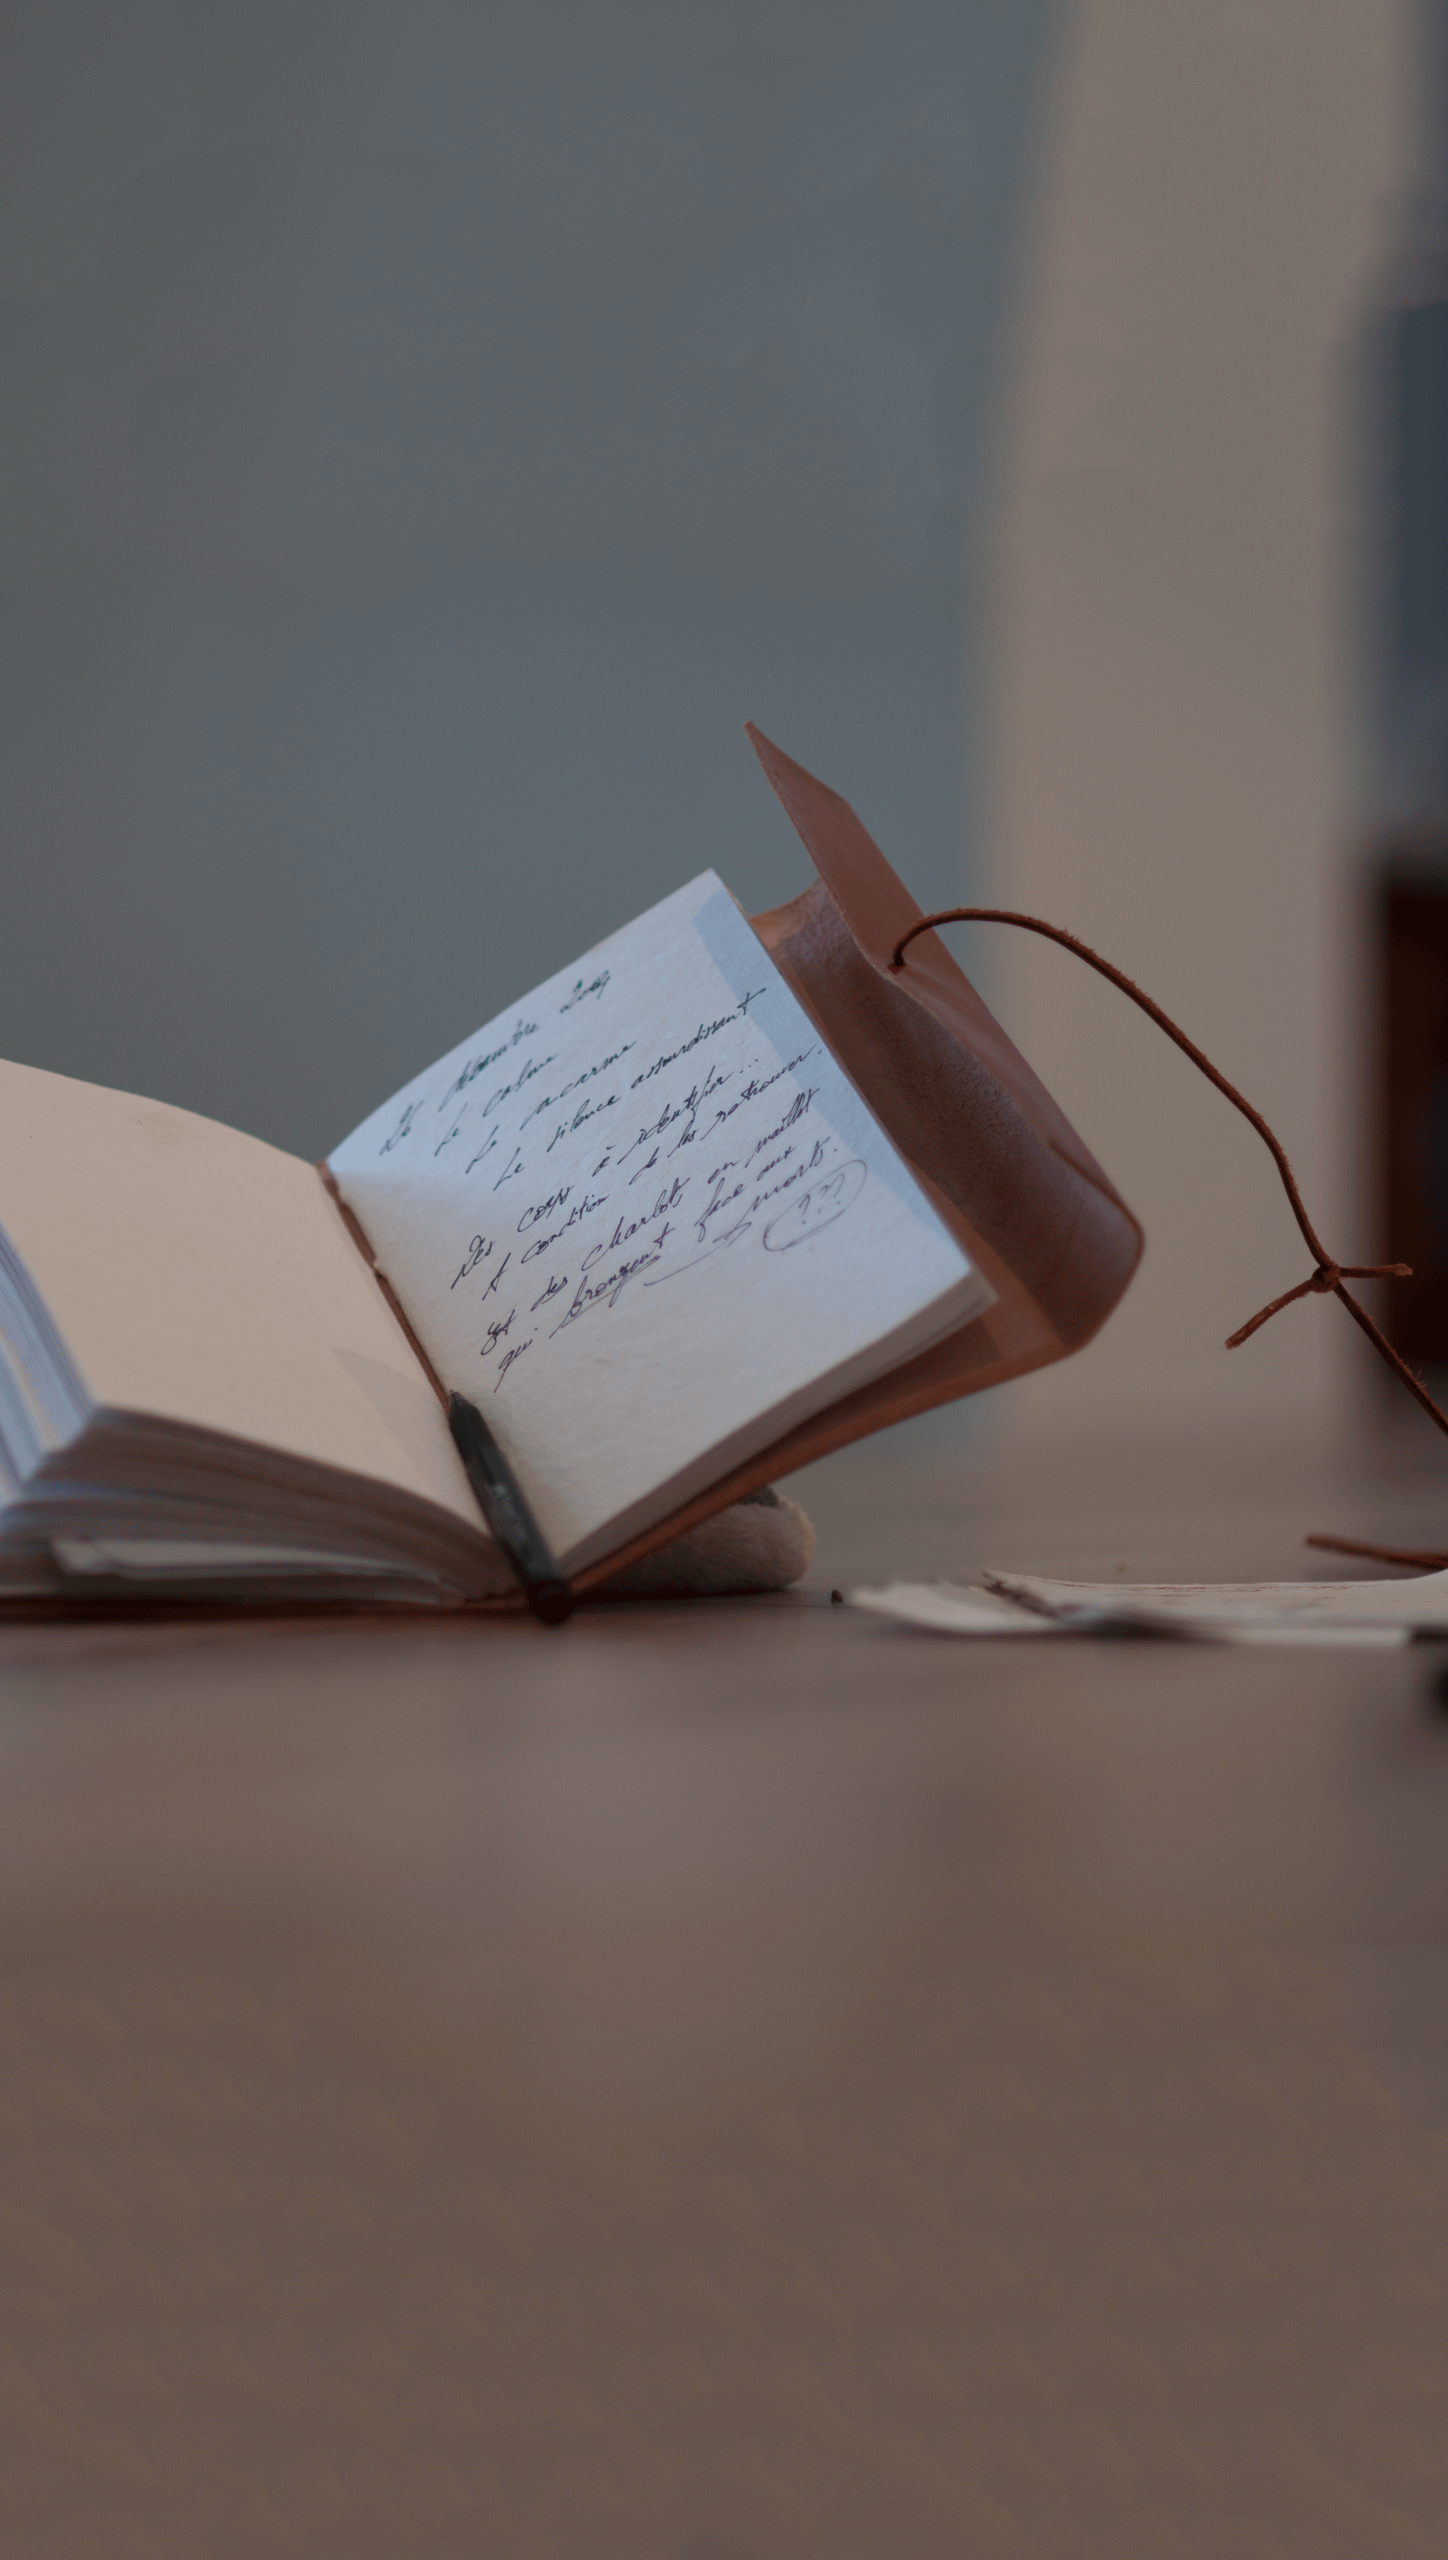 26 décembre 2004
Le calme
Le vacarme
Le silence assourdissant
Des corps à identifier...
A condition de les retrouver.
Et des charlots en maillot
qui bronzent face aux
morts.
???